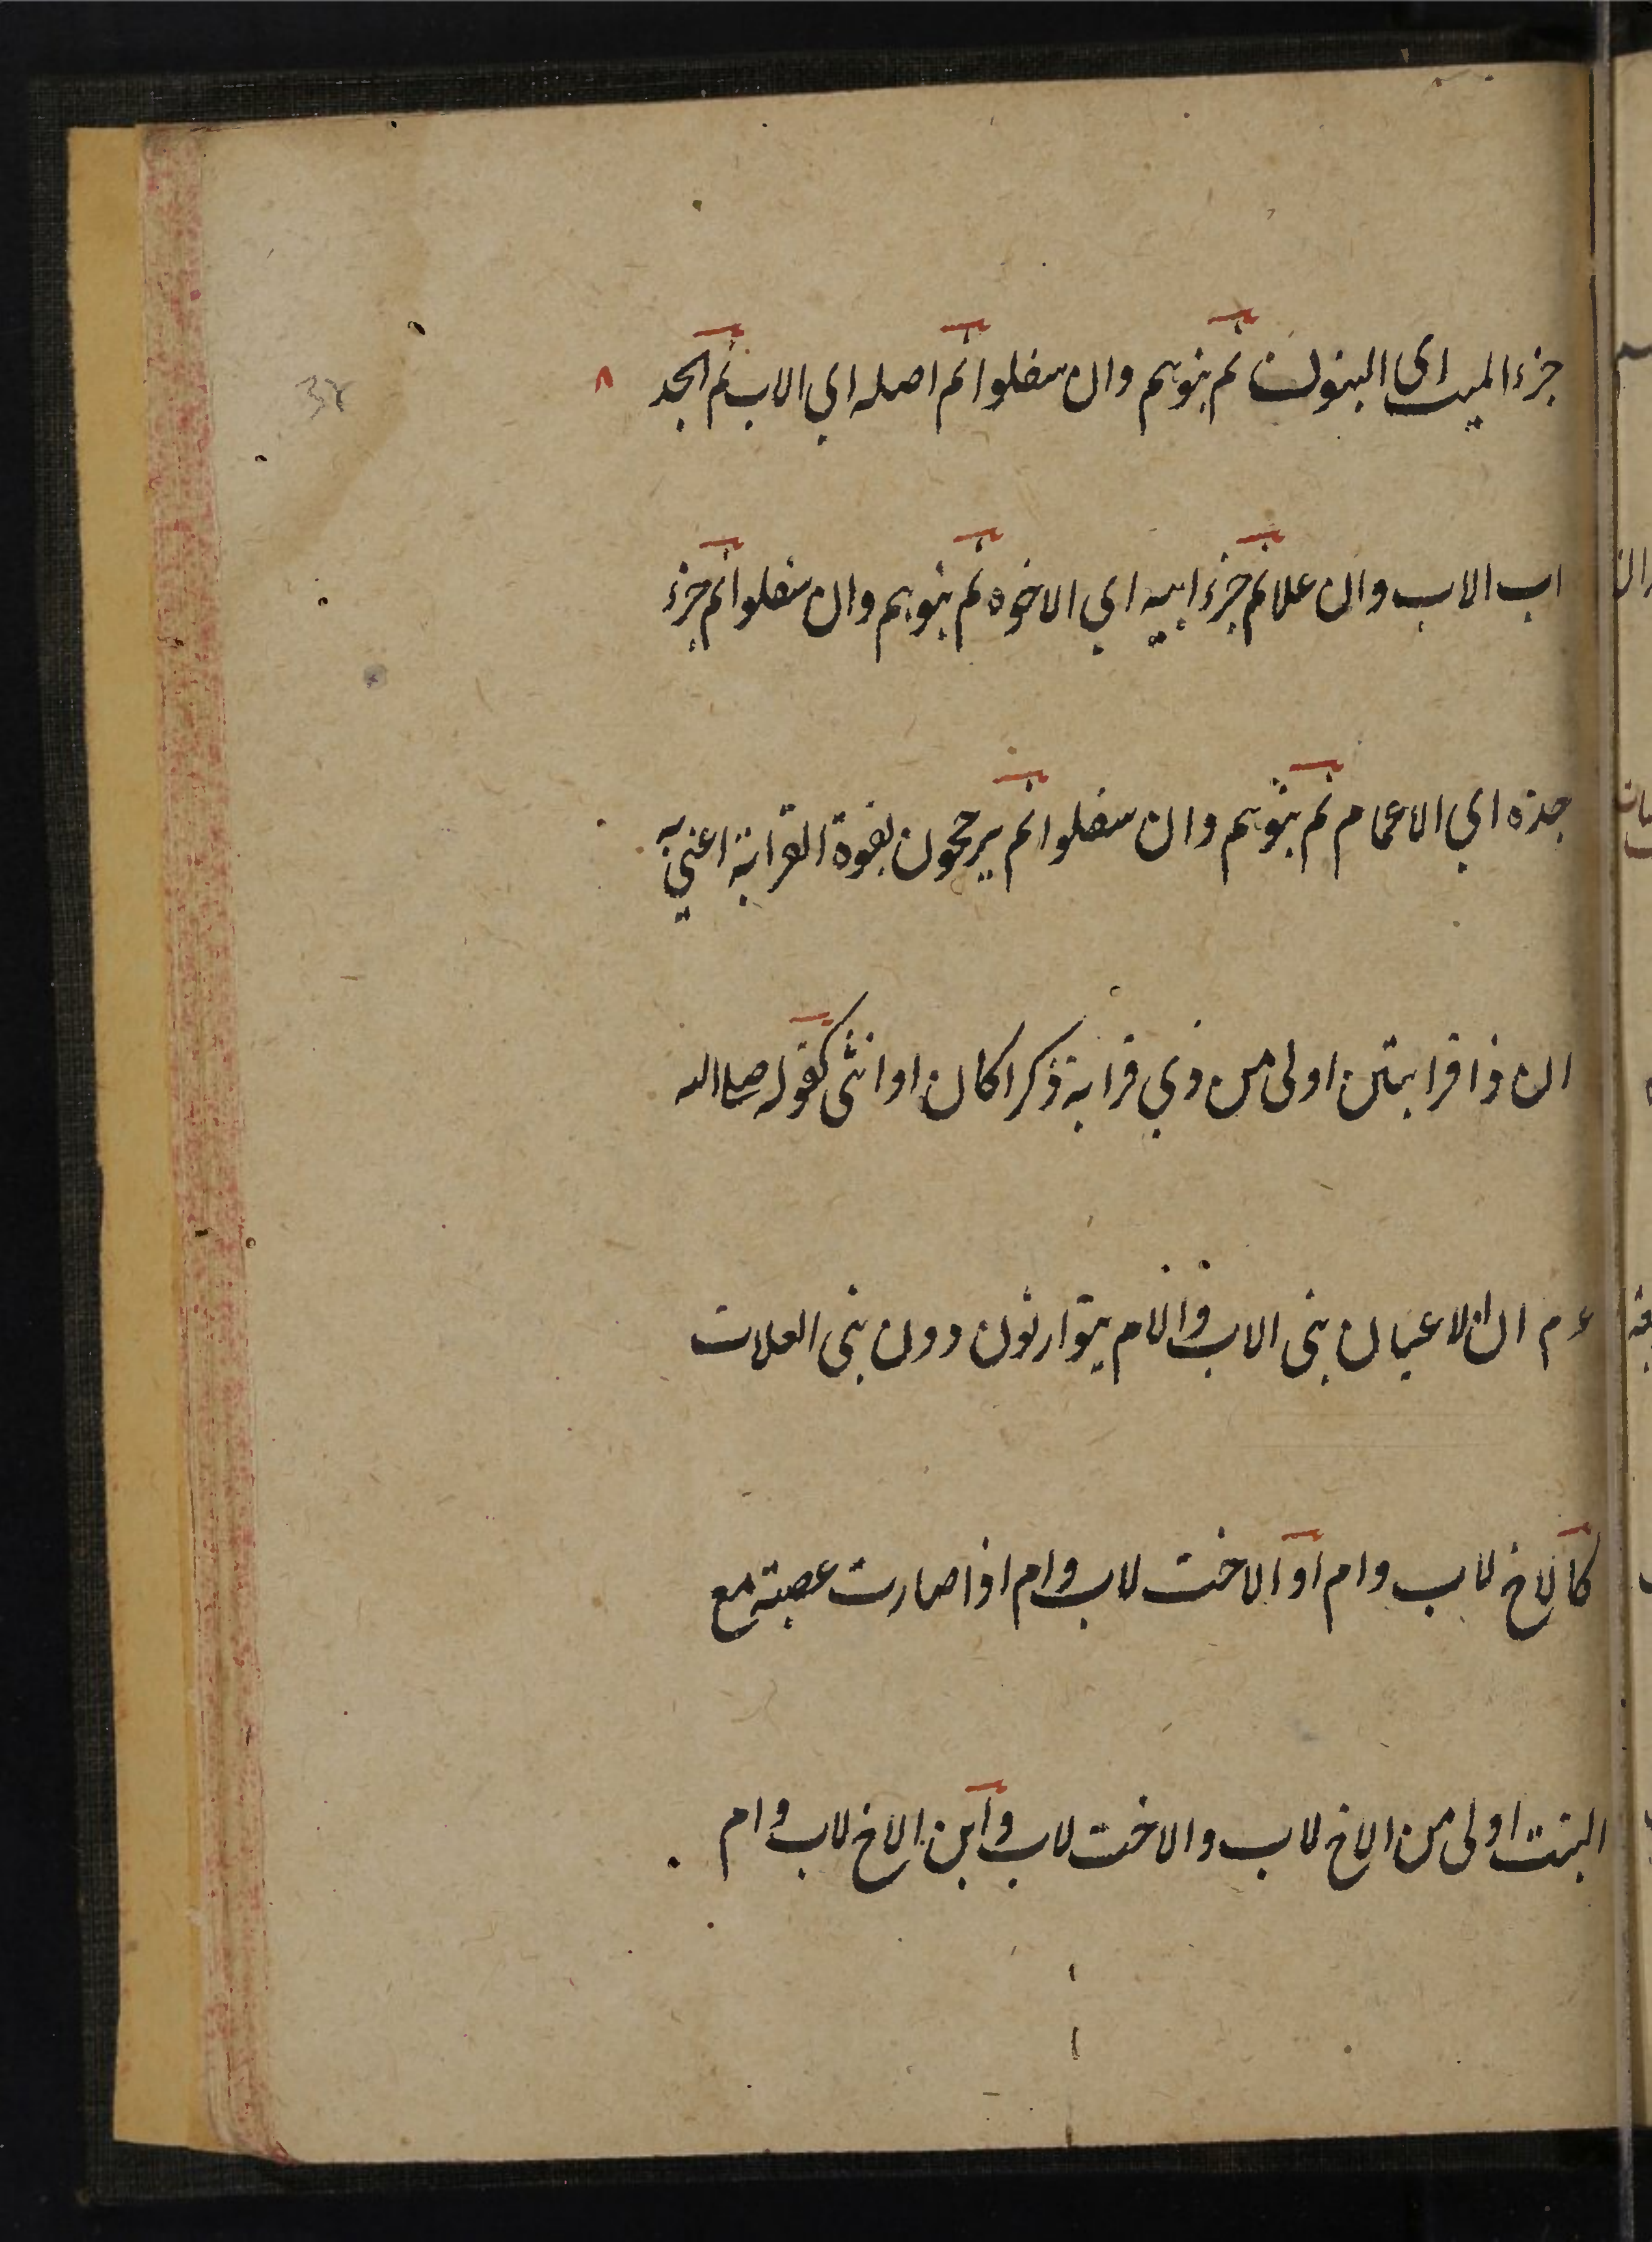 جزء الميت اى البنون ثم بنوهم وان سفلوا ثم اصله اي الاب ثم الجد
اب الاب وان علا ثم جزء ابيه اي الاخوة ثم بنوهم وان سفلوا ثم جزء
جده اي الاعمام ثم بنوهم وان سفلوا ثم يرجحون بقوة القرابة اعني به
ان ذا قرابتين اولى من ذي قرابة ذكرا كان او انثى كقوله صلى الله
ءم ان الاعيان بنى الاب والام يتوارثون دون بنى العلات
كالاخ لاب وام او الاخت لاب وام اذا صارت عصبة مع
البنت اولى من الاخ لاب والاخت لاب وابن الاخ لاب وام